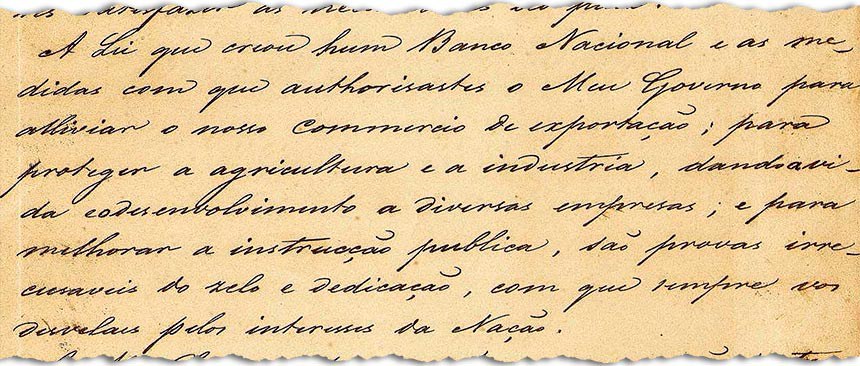 A Lei que creou hum Banco Nacional e as me-
didas com que authorisastes o Meu Governo para
alliviar o nosso commercio de exportação; para
proteger a agricultura e a industria, dando a vi-
da e o desenvolvimento a diversas empresas; e para
melhorar a instrucção publica, são provas irre-
cusaveis do zelo e dedicação, com que sempre vos
desvelaes pelos interesses da Nação.